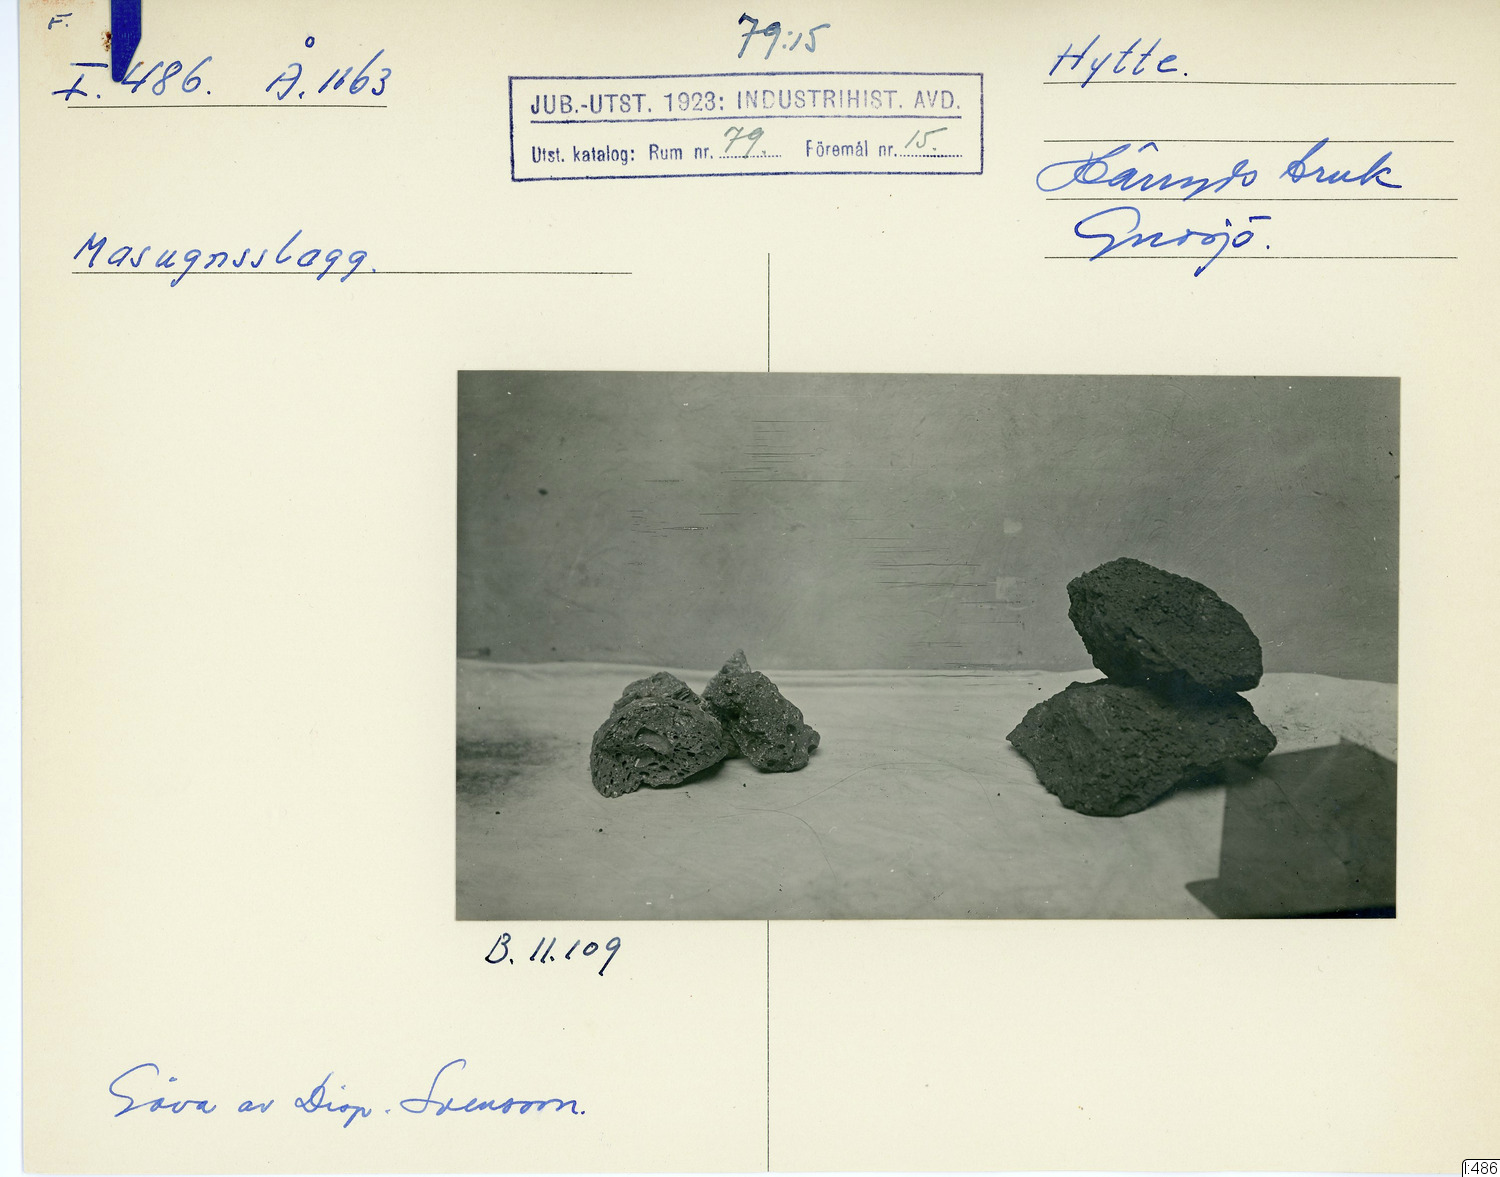 F.
I. 486. Å. 1663
79:15
JUB.-UTST. 1923: INDUSTRIHIST. AVD.
Utst. katalog: Rum nr. 79. Föremål nr. 15.
Hytte.
bruk
Gnosjö.
Masugnsslagg.
B. 11.109
Gåva av Disp. Svensson.
I:486